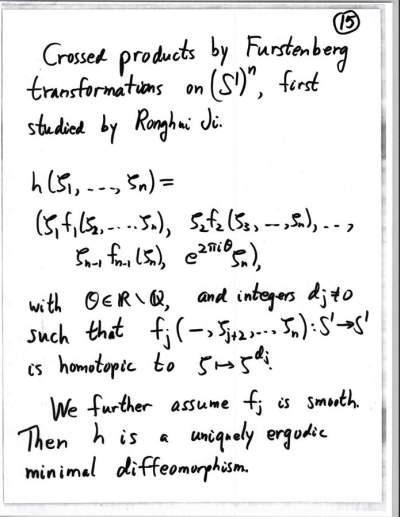 15
Crossed products by Furstenberg
transformations on (S¹)ⁿ, first
studied by Ronghui Ji.
h(ζ₁, ..., ζₙ) =
(ζ₁f₁(ζ₂, ..... ζₙ), ζ₂f₂(ζ₃, ..., ζₙ), ...,
ζₙ₋₁ fₙ₋₁(ζₙ), e^{2πiθ}ζₙ),
with θ∈ℝ\ℚ, and integers dⱼ≠0
such that fⱼ(–, ζⱼ₊₂, ..., ζₙ): S¹→S¹
is homotopic to ζ↦ζ^{dⱼ}.
We further assume fⱼ is smooth.
Then h is a uniquely ergodic
minimal diffeomorphism.